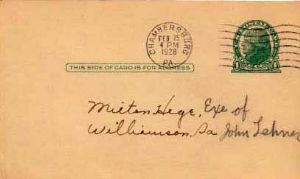 CHAMBERSBURG
FEB 15
4 PM
1928
PA.
THIS SIDE OF CARD IS FOR ADDRESS
Milton Hege, Exe of
Williamson, Pa John Lehner